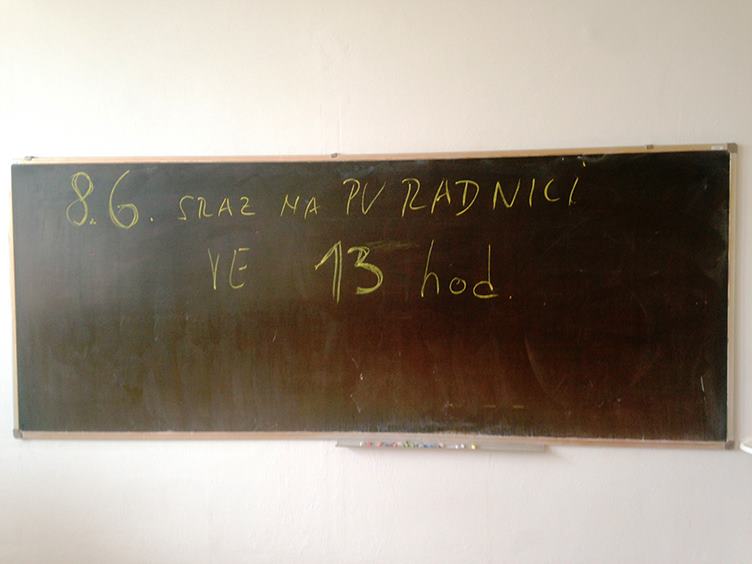 8.6. SRAZ NA PV RADNICI
VE 13 hod.